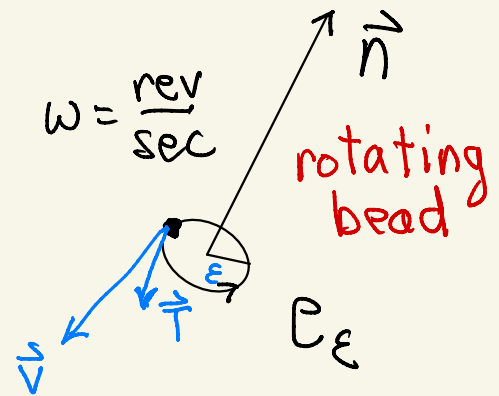 n⃗
ω = rev/sec
rotating
bead
ε
T⃗
C_ε
V⃗